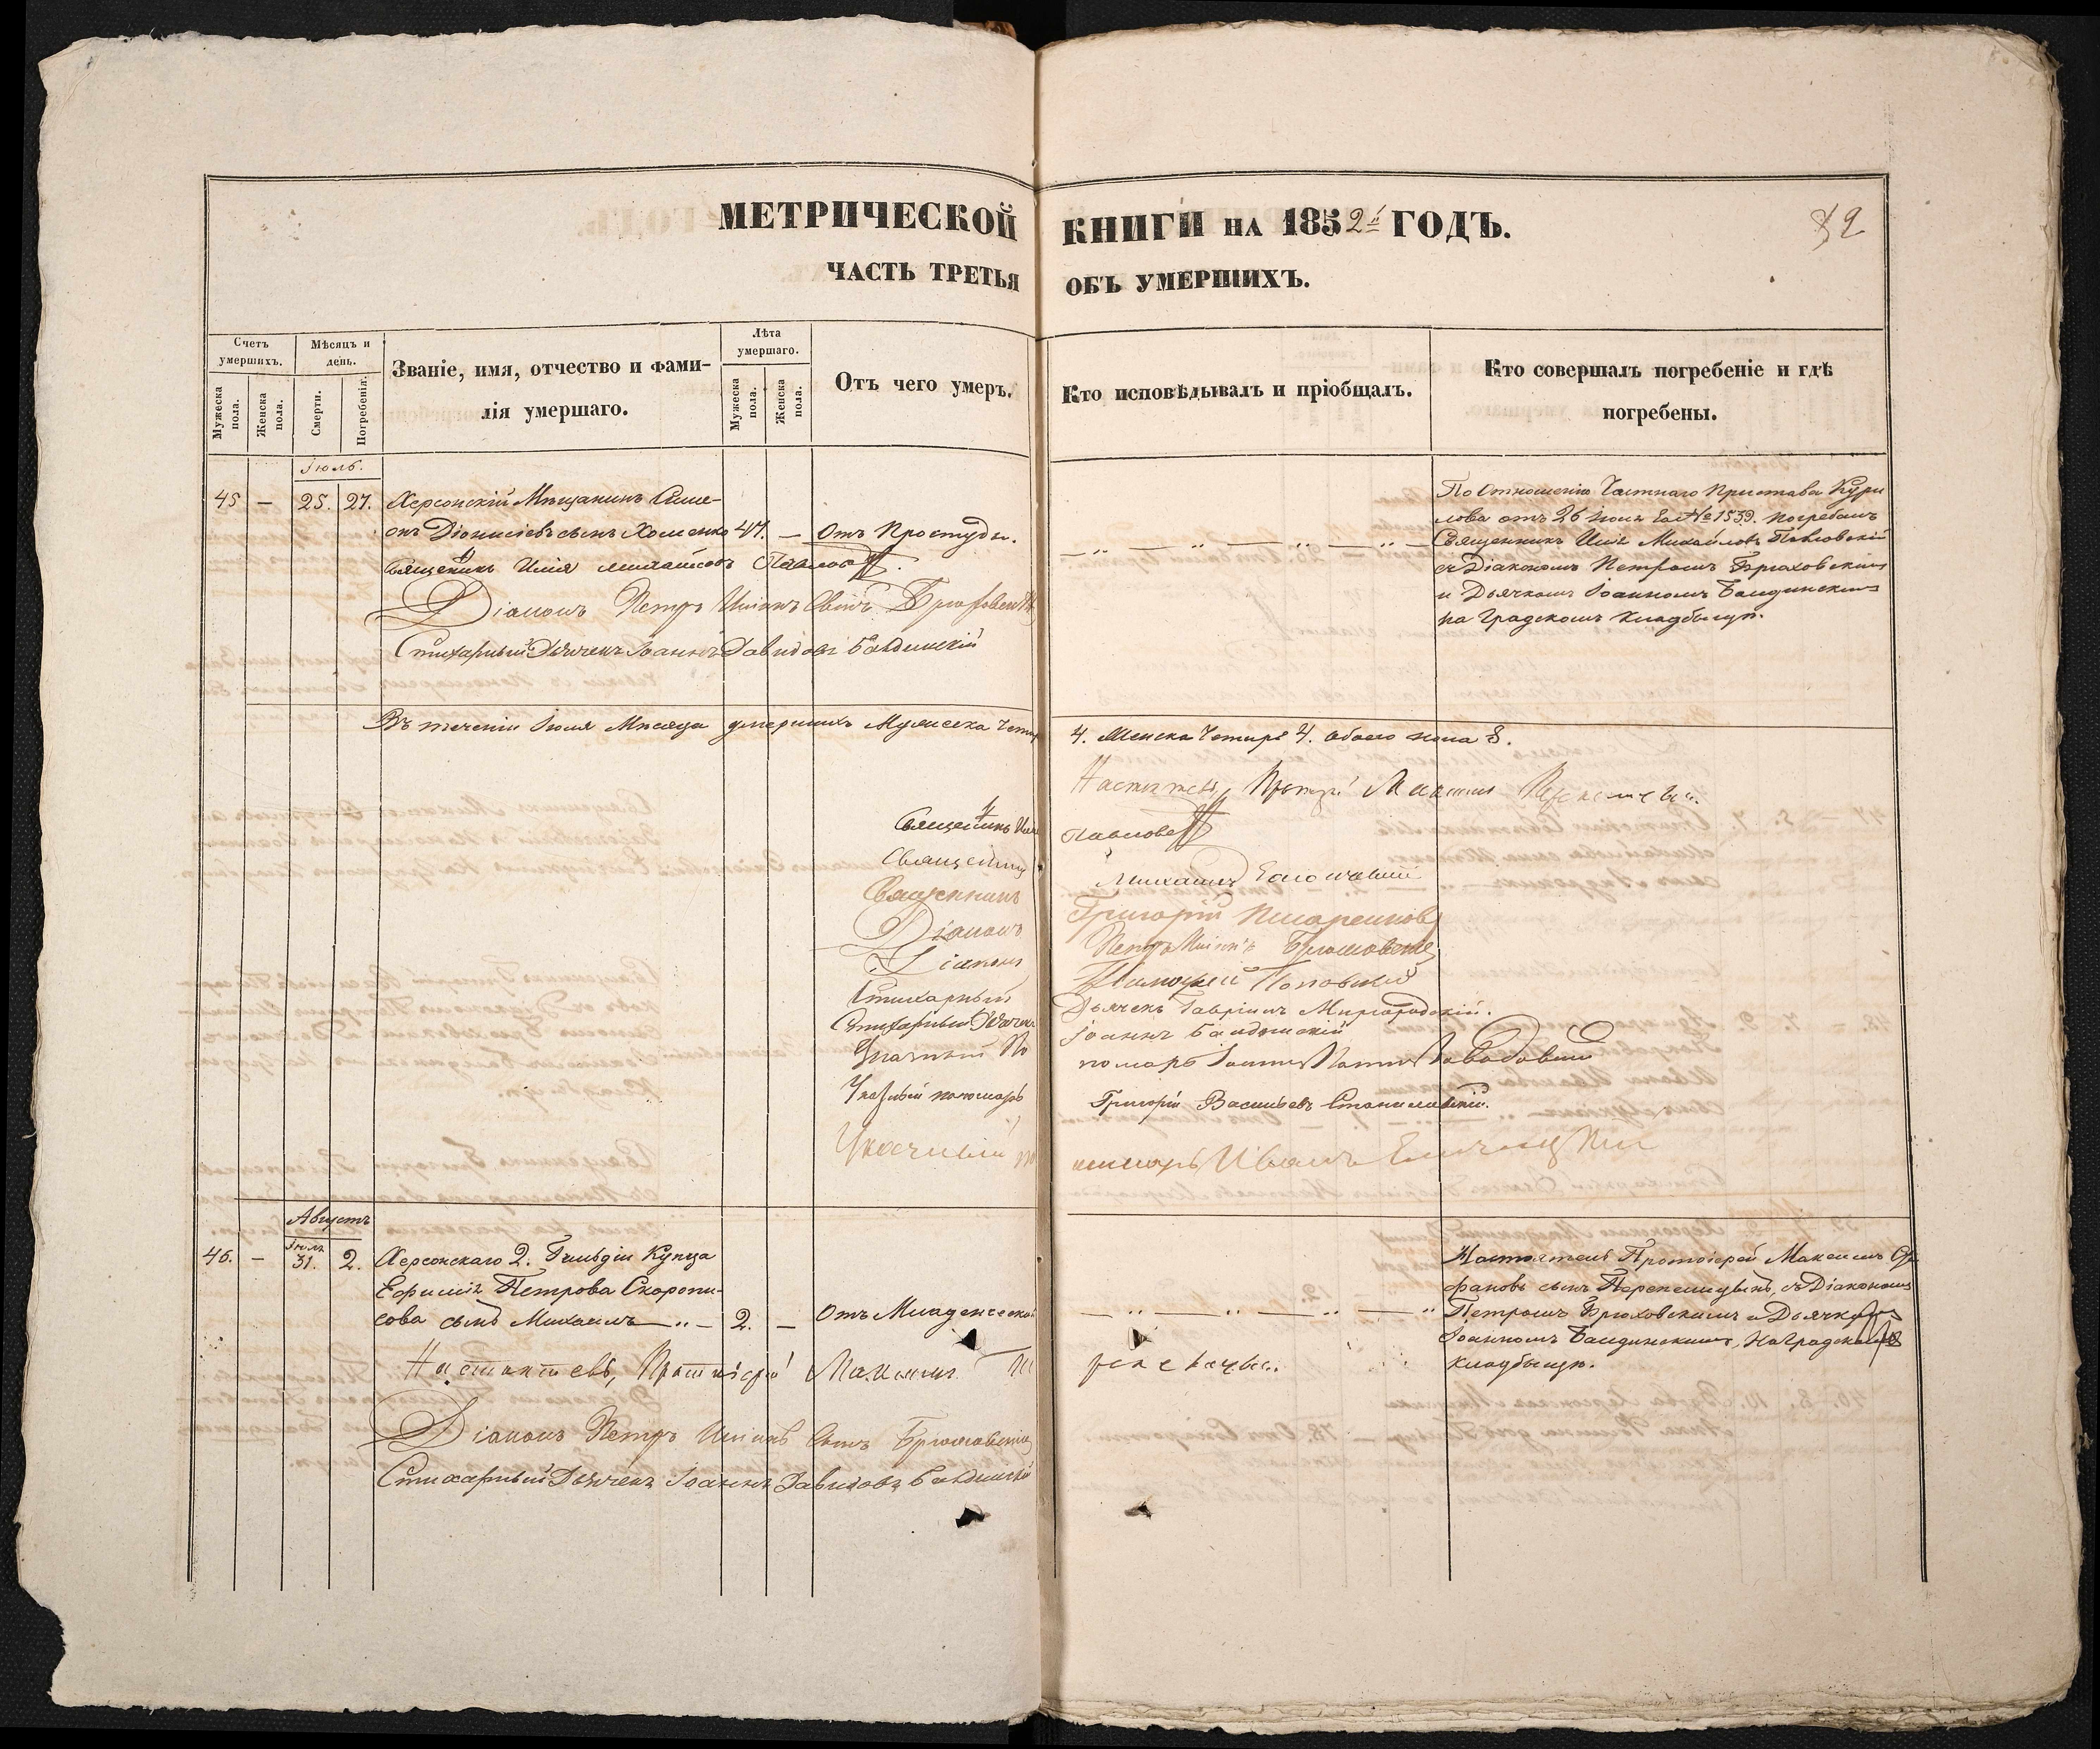 МЕТРИЧЕСКОЙ КНИГИ НА 1852й ГОДЪ.
ЧАСТЬ ТРЕТЬЯ ОБЪ УМЕРШИХЪ.
Счетъ умершихъ.
Мужеска пола.
Женска пола.
Мѣсяцъ и день.
Смерти.
Погребенія.
Званіе, имя, отчество и фами-
лія умершаго.
Лѣта умершаго.
Мужеска пола.
Женска пола.
Отъ чего умеръ.
Кто исповѣдывалъ и пріобщалъ.
Кто совершалъ погребеніе и гдѣ
погребены.
Іюль.
45 — 25. 27. Херсонскій Мѣщанинъ Симе-
онъ Діонисіевъ сынъ Хоменко 47. — Отъ Простуды.
Священникъ Илія Михайловъ Павловс
Діаконъ Петръ Сынъ Брюховск
Стихарный Дьячекъ Іоаннъ Давидовъ Балдинскій
По Отношенію Частнаго Пристава Кури
лова отъ 26 Іюля За №1539. погребалъ
Священникъ Илія Михайловъ Павловскій
съ Діакономъ Петромъ Брюховскимъ
и Дьячкомъ Іоанномъ Балдинскимъ
на Градскомъ кладбищѣ.
Въ теченіи Іюля Мѣсяца умершихъ Мужеска Четыр
4. Женска Четыре 4. обоего пола 8.
Настоятель, Максимъ
Священникъ Илія Павловс
Священникъ Михаилъ
Священникъ Григорій
Діаконъ Петръ Брюховск
Діаконъ
Стихарный Дьячекъ Гавріилъ Миргородскій.
Стихарный Дьячекъ Іоаннъ Балдинскій
Указный По номарь
Указный пономарь Григорій Васильевъ Станиславскій.
Указный пономарь Иванъ
Августъ
Іюля
46. — 31. 2. Херсонскаго 2. Гильдіи Купца
Ефимія Петрова Скоропи-
сова сынъ Михаилъ — 2. — Отъ Младенческой
Настоятель, Протоіерей Максимъ
Діаконъ Петръ Сынъ Брюховск
Стихарный Дьячекъ Іоаннъ Давидовъ Балдинскій
Настоятель Протоіерей Максимъ
фановъ сынъ съ Діакономъ
Петромъ Брюховскимъ и Дьячкомъ
Іоанномъ Балдинскимъ, На Градскомъ
кладбищѣ.